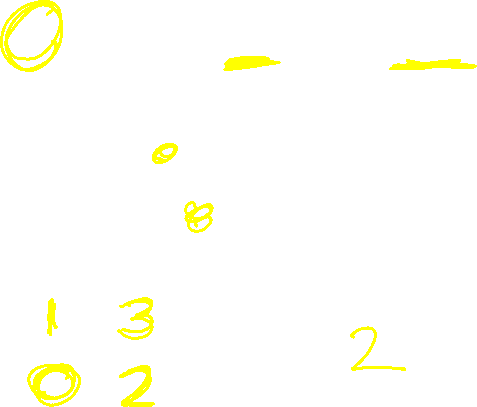 0 - -
0
8
1 3
2
0 2